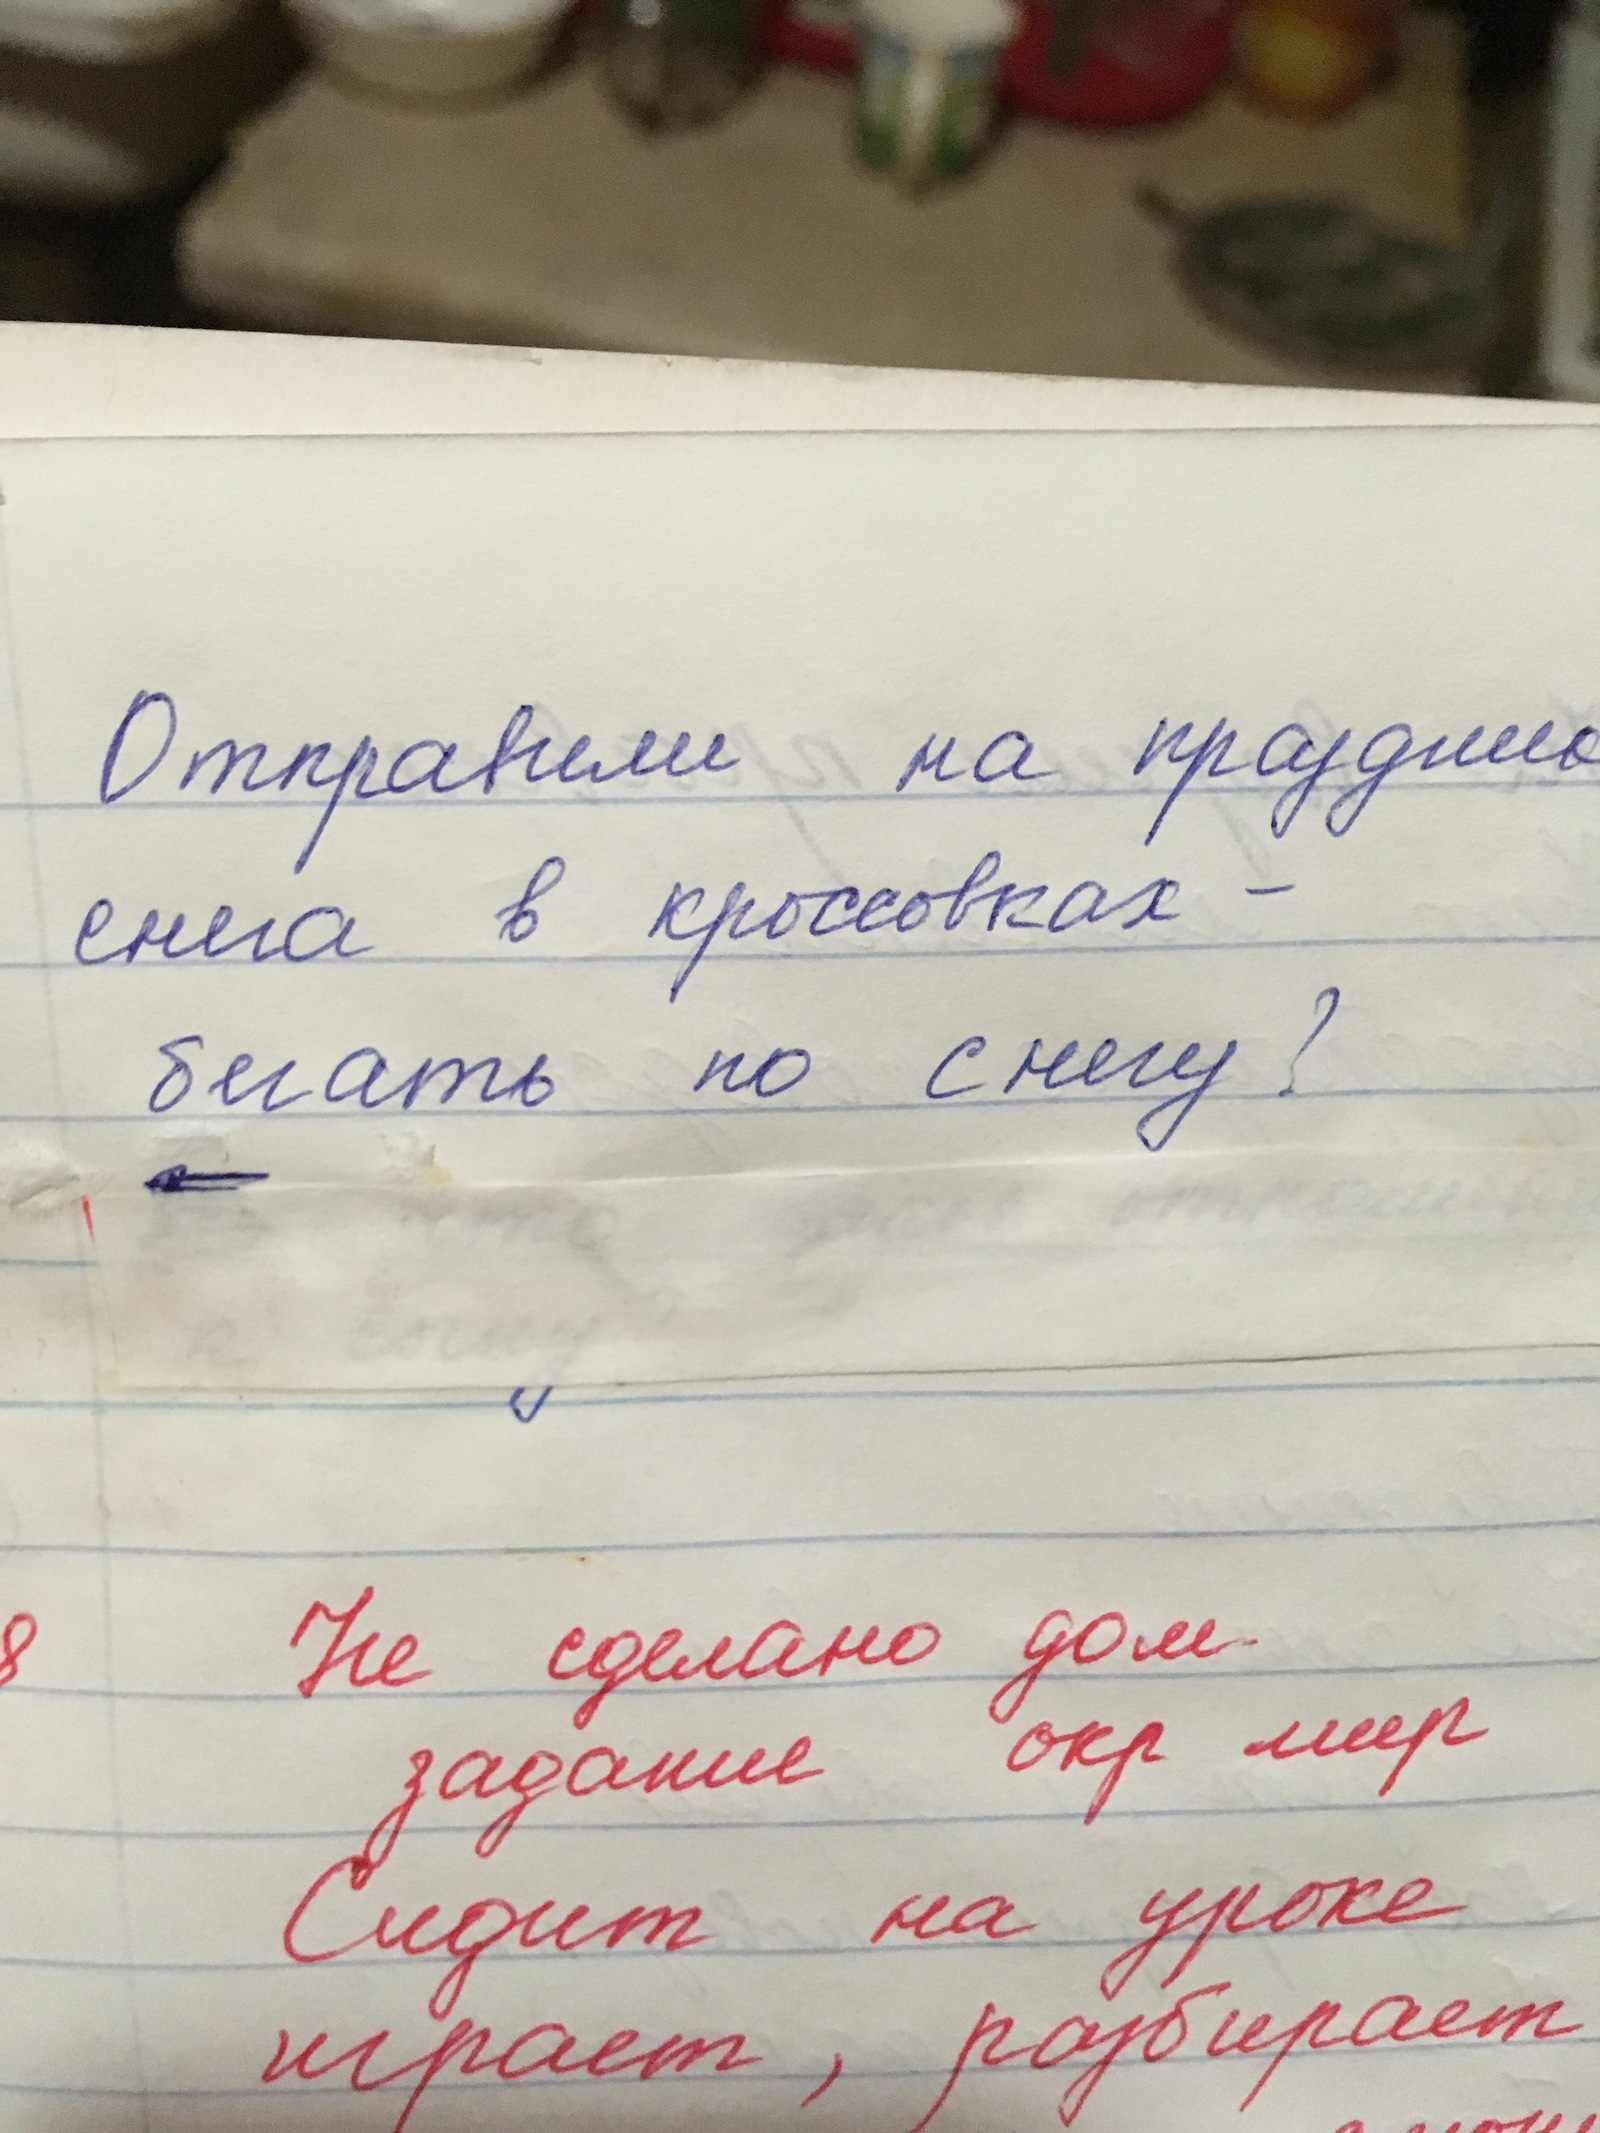 Отправили на праздник
снега в кроссовках -
бегать по снегу?
8 Не сделано дом.
задание окр мир
Сидит на уроке
играет, разбирает